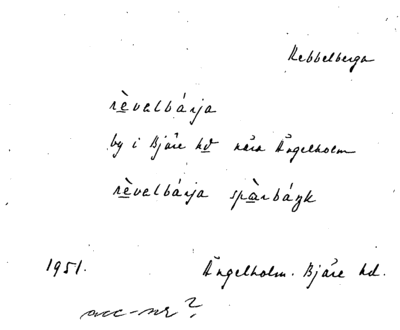 Rebbelberga
rèvelbárja
by i Bjäre hd nära Ängelholm
rèvelbárja spàrbáŋk
1951. Ängelholm. Bjäre hd.
acc-nr?